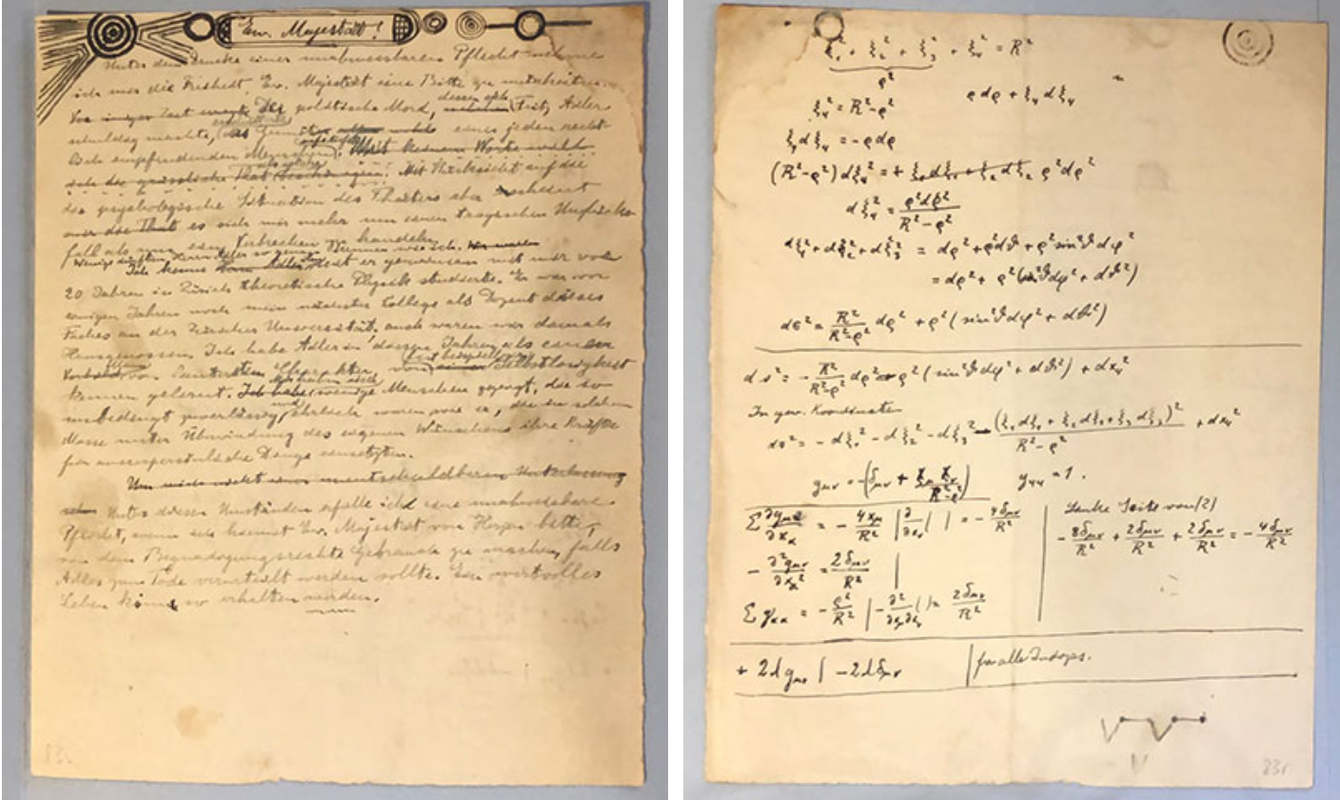 Ew. Majestätt!
Unter dem Drucke einer unabweisbaren Pflicht nehme
ich mir die Freiheit, Ew. Majestät eine Bitte zu unterbreiten.
Der politische Mord, dessen sich Fritz Adler
schuldig machte, hat die Gemüter eines jeden recht-
lich empfindenden Menschen Mit keinem Worte
sich die grässliche That beschönigen. Mit Rücksicht auf die
die psychologische Situation des Thäters aber scheint
es sich mir mehr um einen tragischen Unglücks-
fall als um ein Verbrechen zu handeln.
Wenige dürften Herrn Adler so genau kennen wie ich.
Ich kenne hat er gemeinsam mit mir vor
20 Jahren in Zürich theoretische Physik studierte. Er war vor
einigen Jahren noch mein nächster Collega als Dozent dieses
Faches an der Zürcher Universität, auch waren wir damals
Hausgenossen. Ich habe Adler in diesen Jahren als einen
lautersten Charakter, von Selbstlosigkeit
kennen gelernt. Ich habe wenige Menschen gezeigt, die so
unbedingt zuverlässig und ehrlich waren wie er, die in solchem
Masse unter Überwindung des eigenen Wünschens ihre Kräfte
für ausserpersönliche Dinge einsetzten.
Um mich nicht einer unentschuldbaren Unterlassung
Unter diesen Umständen erfülle ich eine unabweisbare
Pflicht, wenn ich hiemit Ew. Majestät von Herzen bitte,
von dem Begnadigungsrechte Gebrauch zu machen, falls
Adler zum Tode verurteilt werden sollte. Ein wertvolles
Leben könnte so erhalten werden.
83.
ξ₁² + ξ₂² + ξ₃² + ξ₄² = R²
ρ²
ρdρ + ξ₄dξ₄
ξ₄² = R²-ρ²
ξ₄dξ₄ = -ρdρ
(R²-ρ²)dξ₄² = + ξ₁dξ₁+ξ₂dξ₂ ρ²dρ²
dξ₄² = ρ²dρ²/(R²-ρ²)
dξ₁²+dξ₂²+dξ₃² = dρ²+ρ²dϑ+ρ²sin²ϑdφ²
= dρ²+ ρ²(sin²ϑdφ²+dϑ²)
dσ² = R²/(R²-ρ²) dρ² + ρ²(sin²ϑdφ²+dϑ²)
ds² = - R²/(R²-ρ²) dρ² - ρ²(sin²ϑdφ²+dϑ²) + dx₄²
In gew. Koordinaten
ds² = -dξ₁²-dξ₂²-dξ₃² - (ξ₁dξ₁+ξ₂dξ₂+ξ₃dξ₃)²/(R²-ρ²) + dx₄²
gμν = -(δμν + xμxν/(R²-ρ²)) g₄₄ = 1.
Σ∂gμα/∂xα = - 4xμ/R² | ∂/∂xν( ) = - 4δμν/R²
- ∂²gμν/∂xα² = 2δμν/R² |
Σ gαα = - ρ²/R² | - ∂²/∂xμ∂xν( ) = 2δμν/R²
Linke Seite von (2)
- 8δμν/R² + 2δμν/R² + 2δμν/R² = - 4δμν/R²
+ 2λgμν | -2λδμν | für alle Indizes.
83r